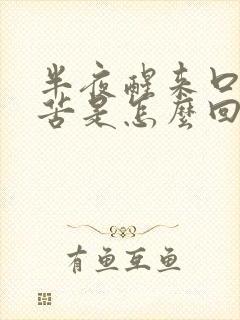 半夜醒来口
苦是怎麼回
有鱼互鱼